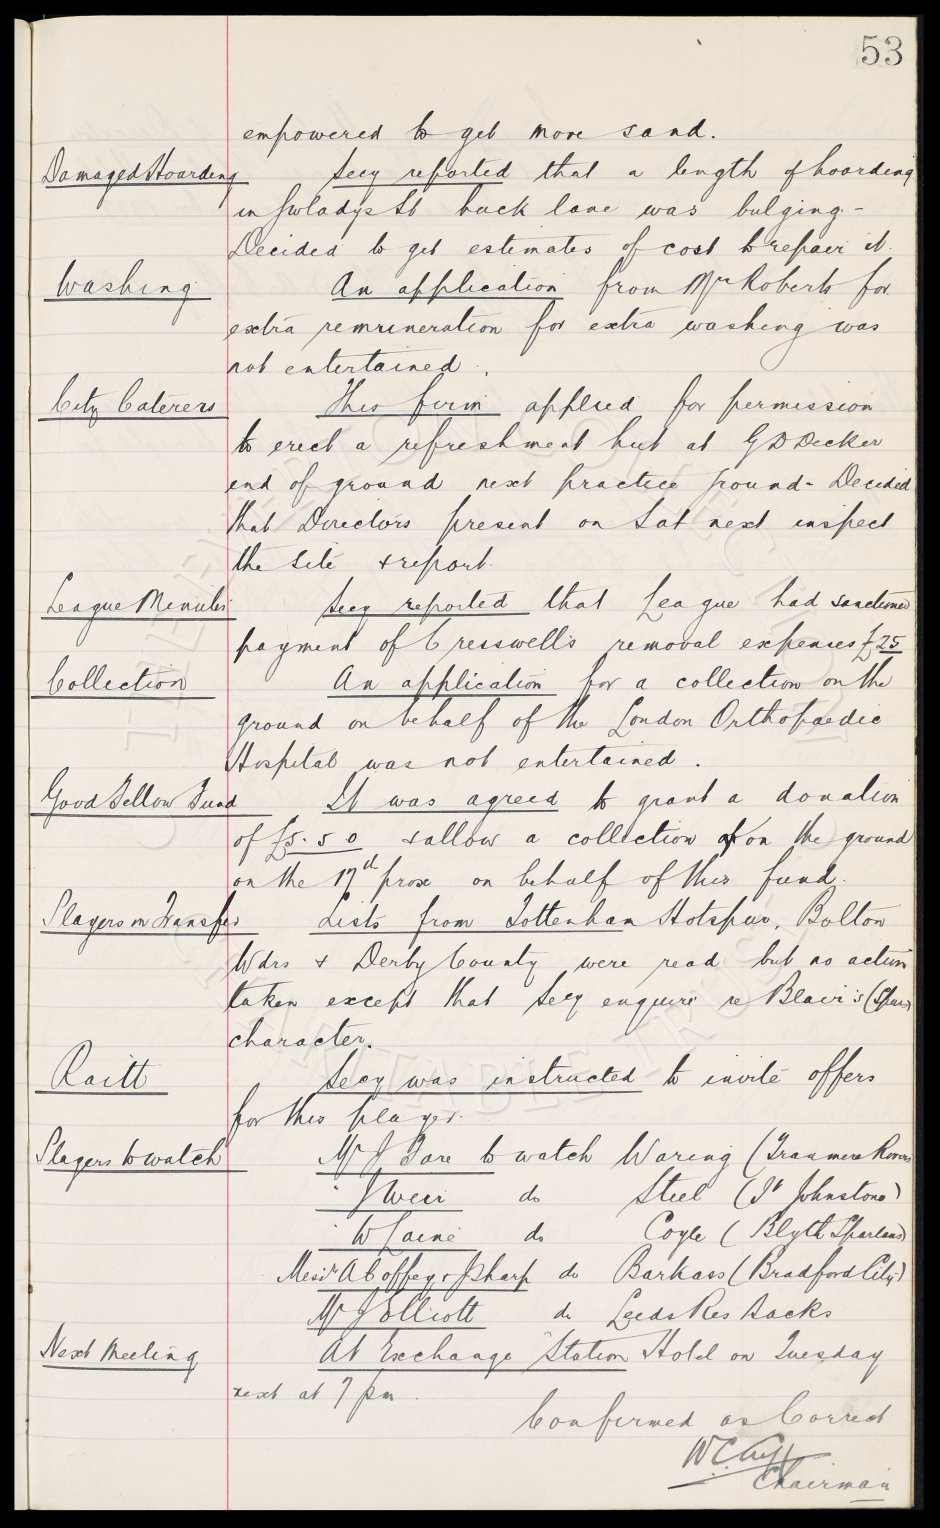 53
empowered to get more sand.
Damaged Hoarding Secy reported that a length of hoarding
in Gwladys St back lane was bulging -
Decided to get estimates of cost to repair it.
Washing An application from Mrs Roberts for
extra remuneration for extra washing was
not entertained.
City Caterers This firm applied for permission
to erect a refreshment hut at G D Decker
end of ground next practice ground - Decided
that Directors present on Sat next inspect
the site & report.
League Minutes Secy reported that League had sanctioned
payment of Cresswell's removal expenses £25
Collection An application for a collection on the
ground on behalf of the London Orthopaedic
Hospital was not entertained.
Good Fellow Fund It was agreed to grant a donation
of £5.5.0 & allow a collection on the ground
on the 17th prox on behalf of this fund.
Players on Transfer Lists from Tottenham Hotspur, Bolton
Wdrs & Derby County were read but no action
taken except that Secy enquire re Blair's (Spurs)
character.
Raitt Secy was instructed to invite offers
for this player.
Players to watch Mr J Fare to watch Waring (Tranmere Rovers)
" J Weir do Steel (St Johnstone)
" W Laine do Coyle (Blyth Spartans)
Messrs A Coffey & J Sharp do Barkass (Bradford City)
Mr J Elliott do Leeds Res Backs
Next Meeting At Exchange Station Hotel on Tuesday
next at 7 pm.
Confirmed as Correct
W C Cuff
Chairman